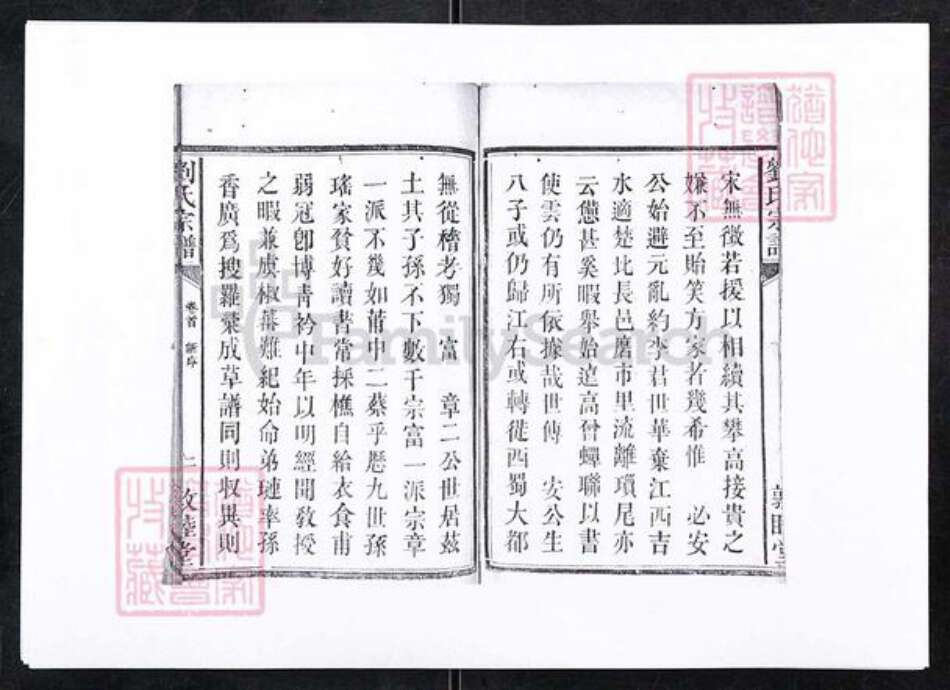 劉氏宗譜
敦睦堂
宋無徵若援以相續其攀高接貴之
嫌不至貽笑方家者幾希惟 必安
公始避元亂約李君世華棄江西吉
水適楚比長邑磨市里流離瑣尾亦
云憊甚奚暇舉始逹高曾蟬聯以書
使雲仍有所依據哉世傳 安公生
八子或仍歸江右或轉徙西蜀大都
無從稽考獨 富 章二公世居茲
土其子孫不下數千宗富一派宗章
一派不幾如莆中二蔡乎厯九世孫
瑤家貧好讀書常採樵自給衣食甫
弱冠卽博青衿中年以明經開敎授
之暇兼虞椒蕃難紀始命弟璉率孫
香廣爲搜羅彙成草譜同則收異則
劉氏宗譜
卷首
譜序
二
敦睦堂
FamilySearch